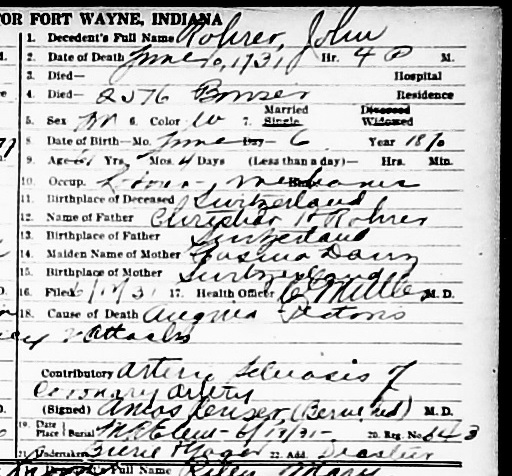 TOR FORT WAYNE, INDIANA
1. Decedent's Full Name Rohrer, John
2. Date of Death June 10, 1931 Hr. 4 P M.
3. Died— Hospital
4. Died— 2576 Bowser Residence
Married Divorced
5. Sex M 6. Color W 7. Single Widowed
8. Date of Birth—Mo. June Day 6 Year 1870
9. Age 61 Yrs. Mos. 4 Days (Less than a day)— Hrs. Min.
10. Occup.
11. Birthplace of Deceased Switzerland
12. Name of Father Christian Rohrer
13. Birthplace of Father Switzerland
14. Maiden Name of Mother Rosina
15. Birthplace of Mother Switzerland
16. Filed 6/ /31 17. Health Officer M. D.
18. Cause of Death Angina Pectoris
Attacks
Contributory Arterio Sclerosis of
Coronary Artery
(Signed) Amos (Berne Ind) M. D.
19. Date Place Burial 6/ /31— 20. Reg. No. 643
21. Undertaker 22. Add. Decatur
Full Name Riley, Mary